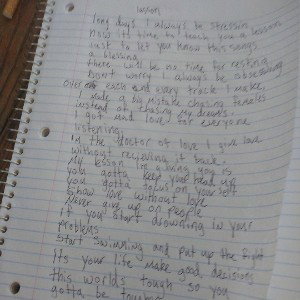 lesson
long days I always be stressin
now its time to teach you a lesson
Just to let you know this songs
a blessing
there will be no time for resting
Don't worry I always be obsessing
over each and every track I make,
I made a big mistake chasing females
instead of chasing my dreams.
I got mad love for everyone
listening,
I'm the doctor of love I give love
without recieving it back.
My lesson I'm giving you is
you gotta keep your head up
you gotta focus on yourself
Show love without love
Never give up on people
if you start drowning in your
problems
start swimming and put up the fight
Its your life make good decisions
this worlds tough so you
gotta be tougher